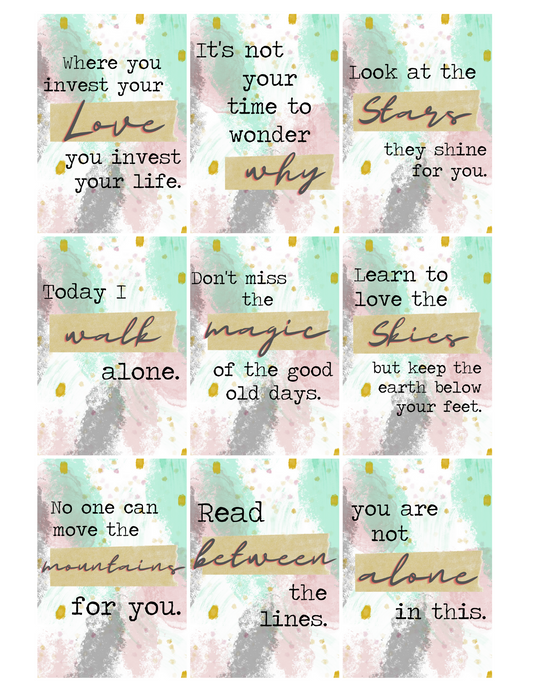 Where you
invest your
Love
you invest
your life.
It's not
your
time to
wonder
why
Look at the
Stars
they shine
for you.
Today I
walk
alone.
Don't miss
the
magic
of the good
old days.
Learn to
love the
Skies
but keep the
earth below
your feet.
No one can
move the
mountains
for you.
Read
between
the
lines.
you are
not
alone
in this.